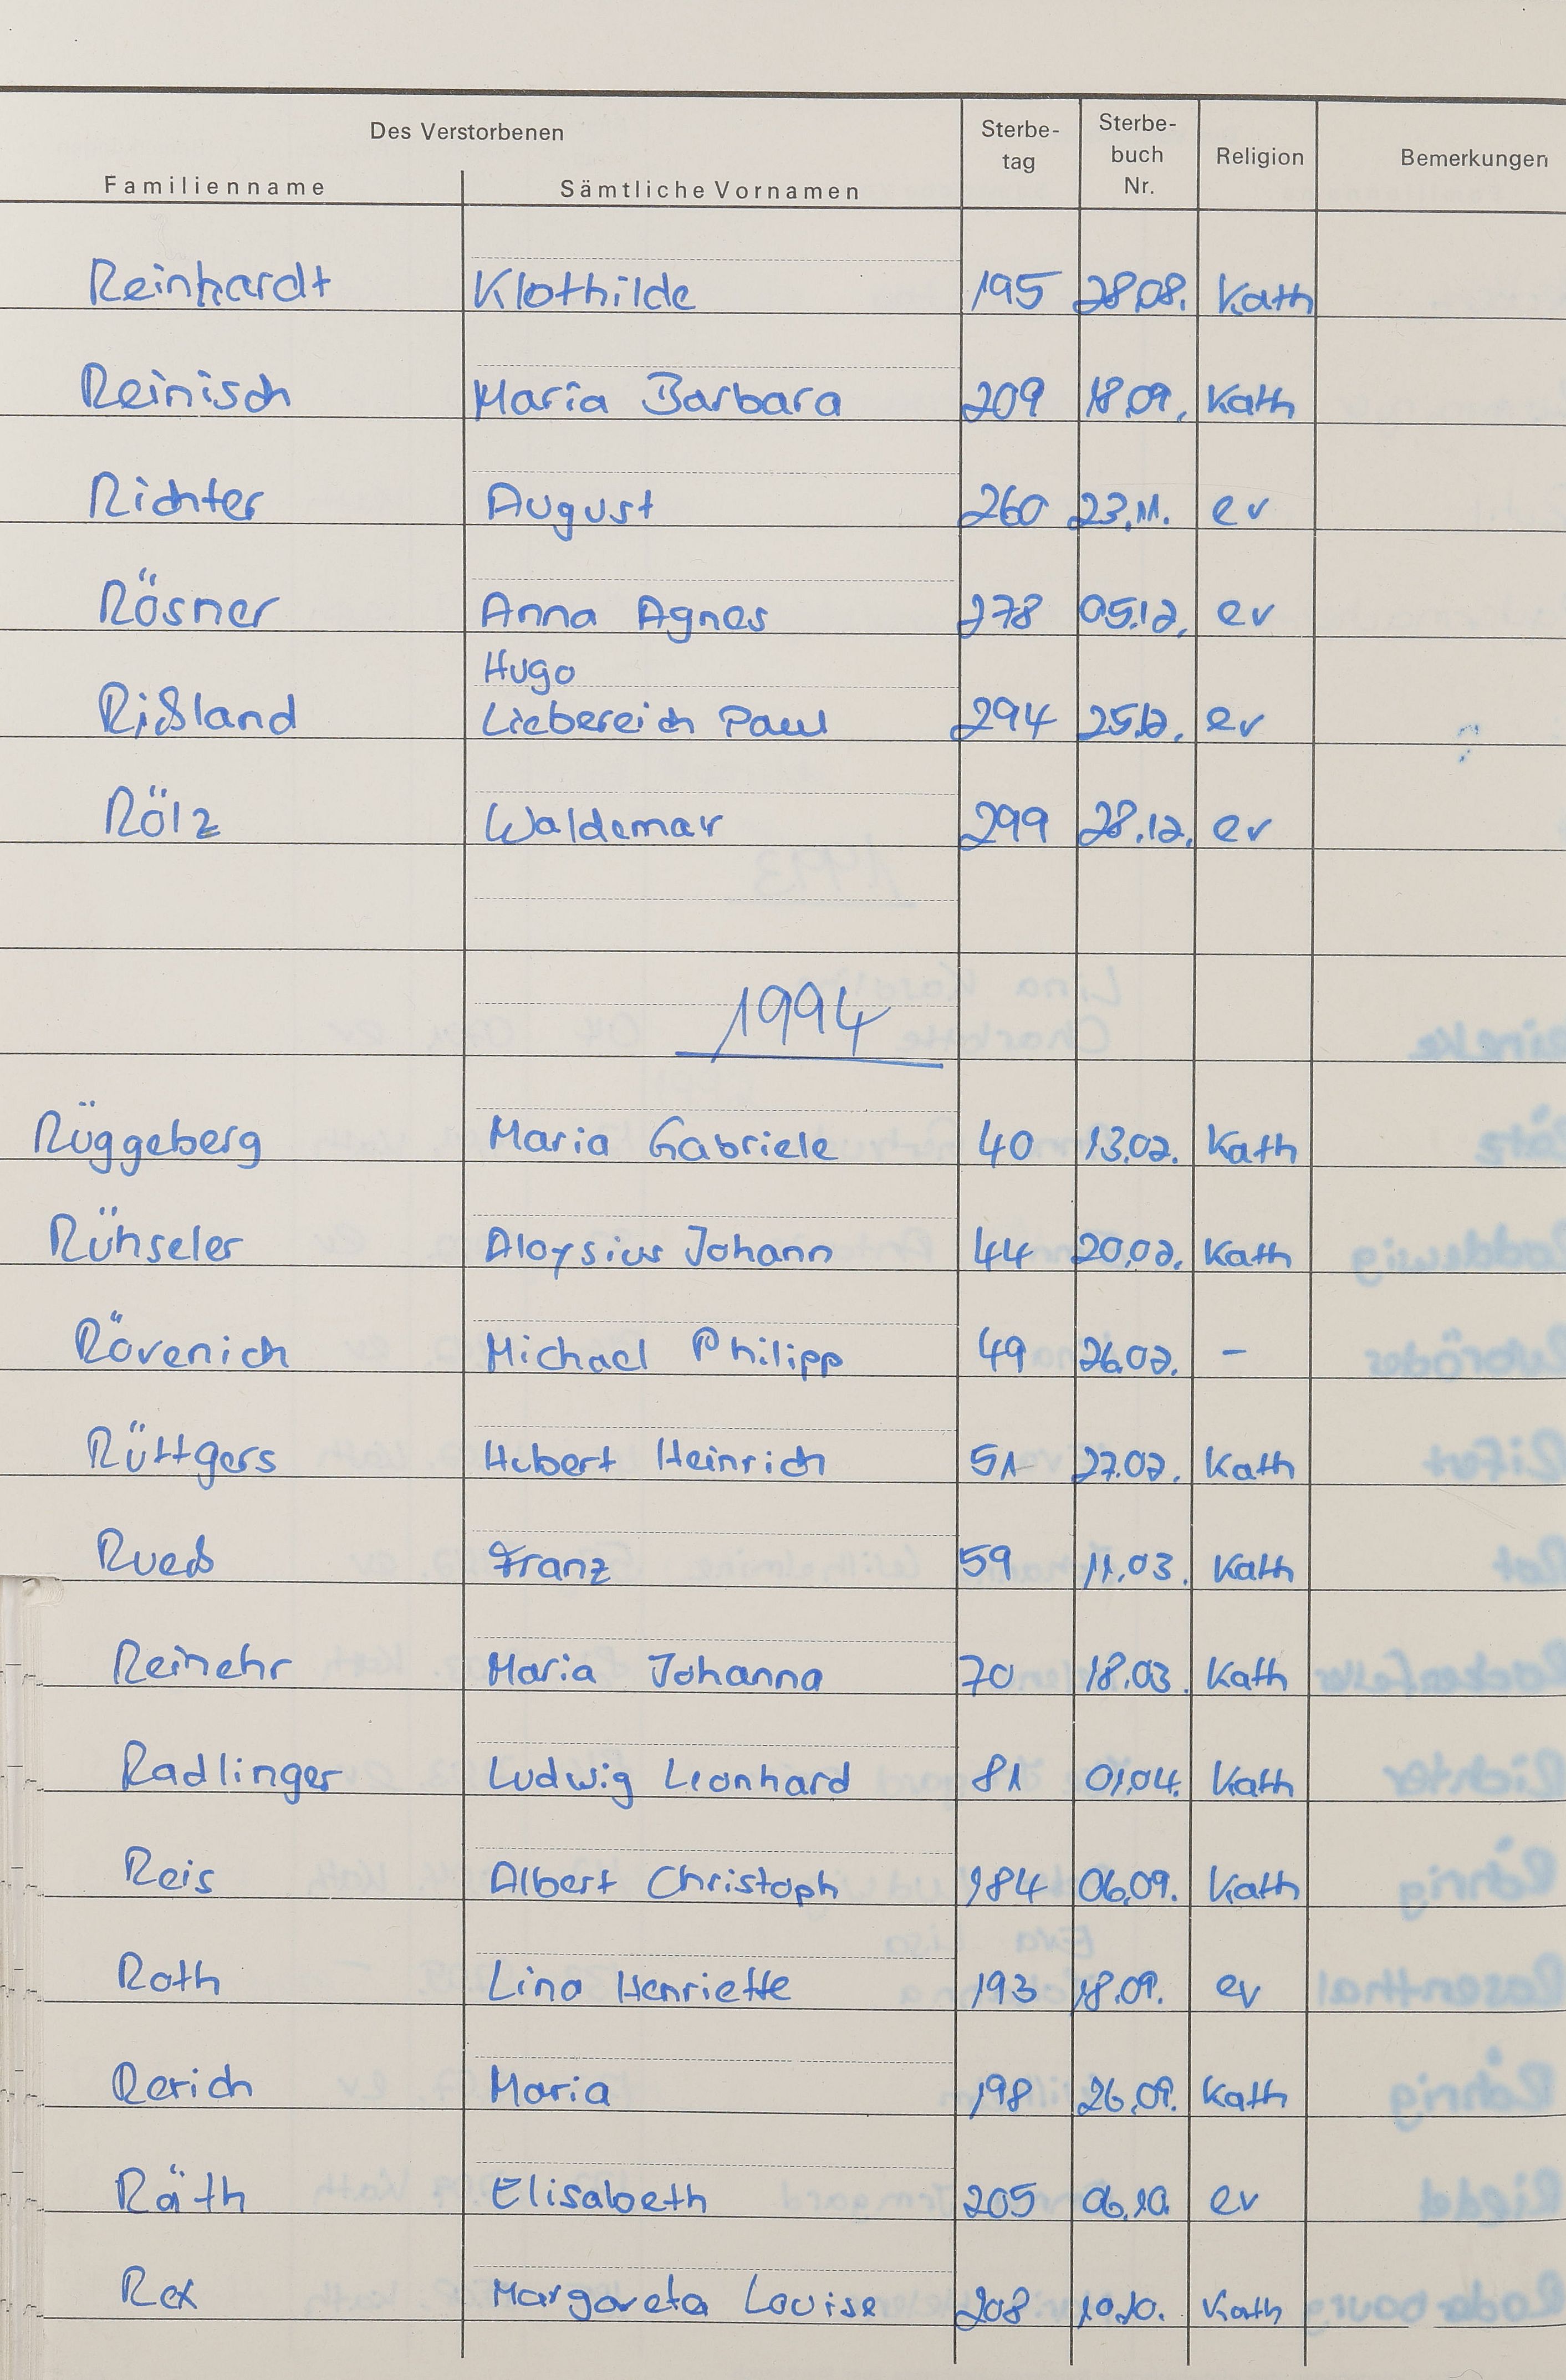 Des Verstorbenen
Familienname Sämtliche Vornamen Sterbe-tag Sterbe-buch Nr. Religion Bemerkungen
Reinhardt Klothilde 195 28.08. Kath
Reinisch Maria Barbara 209 18.09. Kath
Richter August 260 23.11. ev
Rösner Anna Agnes 278 05.12. ev
Hugo
Rißland Liebereich Paul 294 25.12. ev
Rölz Waldemar 299 28.12. ev
1994
Rüggeberg Maria Gabriele 40 13.02. Kath
Rühseler Aloysius Johann 44 20.02. Kath
Rövenich Michael Philipp 49 26.02. –
Rüttgers Hubert Heinrich 51 27.02. Kath
Rueß Franz 59 11.03. Kath
Reinehr Maria Johanna 70 18.03. Kath
Radlinger Ludwig Leonhard 81 01.04. Kath
Reis Albert Christoph 184 06.09. Kath
Roth Lina Henriette 193 18.09. ev
Rerich Maria 198 26.09. Kath
Räth Elisabeth 205 06.10. ev
Rex Margareta Louise 208 10.10. Kath